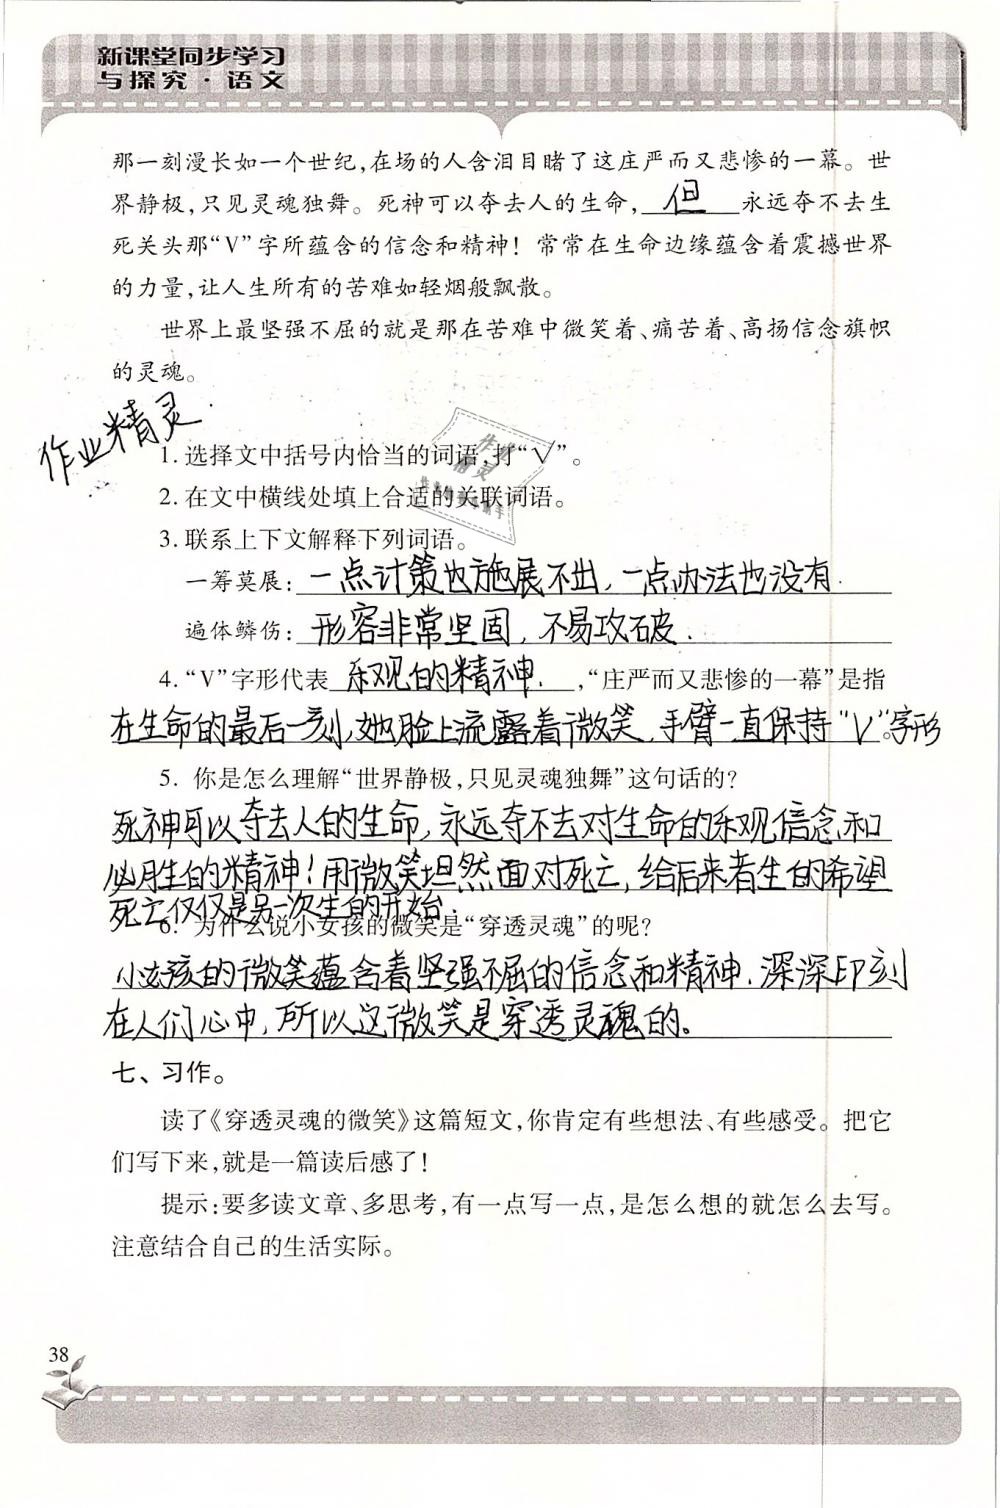 新课堂同步学习
与探究·语文
那一刻漫长如一个世纪,在场的人含泪目睹了这庄严而又悲惨的一幕。世
界静极,只见灵魂独舞。死神可以夺去人的生命,但永远夺不去生
死关头那“V”字所蕴含的信念和精神!常常在生命边缘蕴含着震撼世界
的力量,让人生所有的苦难如轻烟般飘散。
世界上最坚强不屈的就是那在苦难中微笑着、痛苦着、高扬信念旗帜
的灵魂。
作业精灵
1. 选择文中括号内恰当的词语,打“√”。
2. 在文中横线处填上合适的关联词语。
3. 联系上下文解释下列词语。
一筹莫展:一点计策也施展不出,一点办法也没有.
遍体鳞伤:形容非常坚固,不易攻破.
4. “V”字形代表乐观的精神.,“庄严而又悲惨的一幕”是指
在生命的最后一刻,她脸上流露着微笑,手臂一直保持“V”字形。
5. 你是怎么理解“世界静极,只见灵魂独舞”这句话的?
死神可以夺去人的生命,永远夺不去对生命的乐观信念和
必胜的精神!用微笑坦然面对死亡,给后来者生的希望
死亡仅仅是另一次生的开始.
6. 为什么说小女孩的微笑是“穿透灵魂”的呢?
小女孩的微笑蕴含着坚强不屈的信念和精神.深深印刻
在人们心中,所以这微笑是穿透灵魂的。
七、习作。
读了《穿透灵魂的微笑》这篇短文,你肯定有些想法、有些感受。把它
们写下来,就是一篇读后感了!
提示:要多读文章、多思考,有一点写一点,是怎么想的就怎么去写。
注意结合自己的生活实际。
38